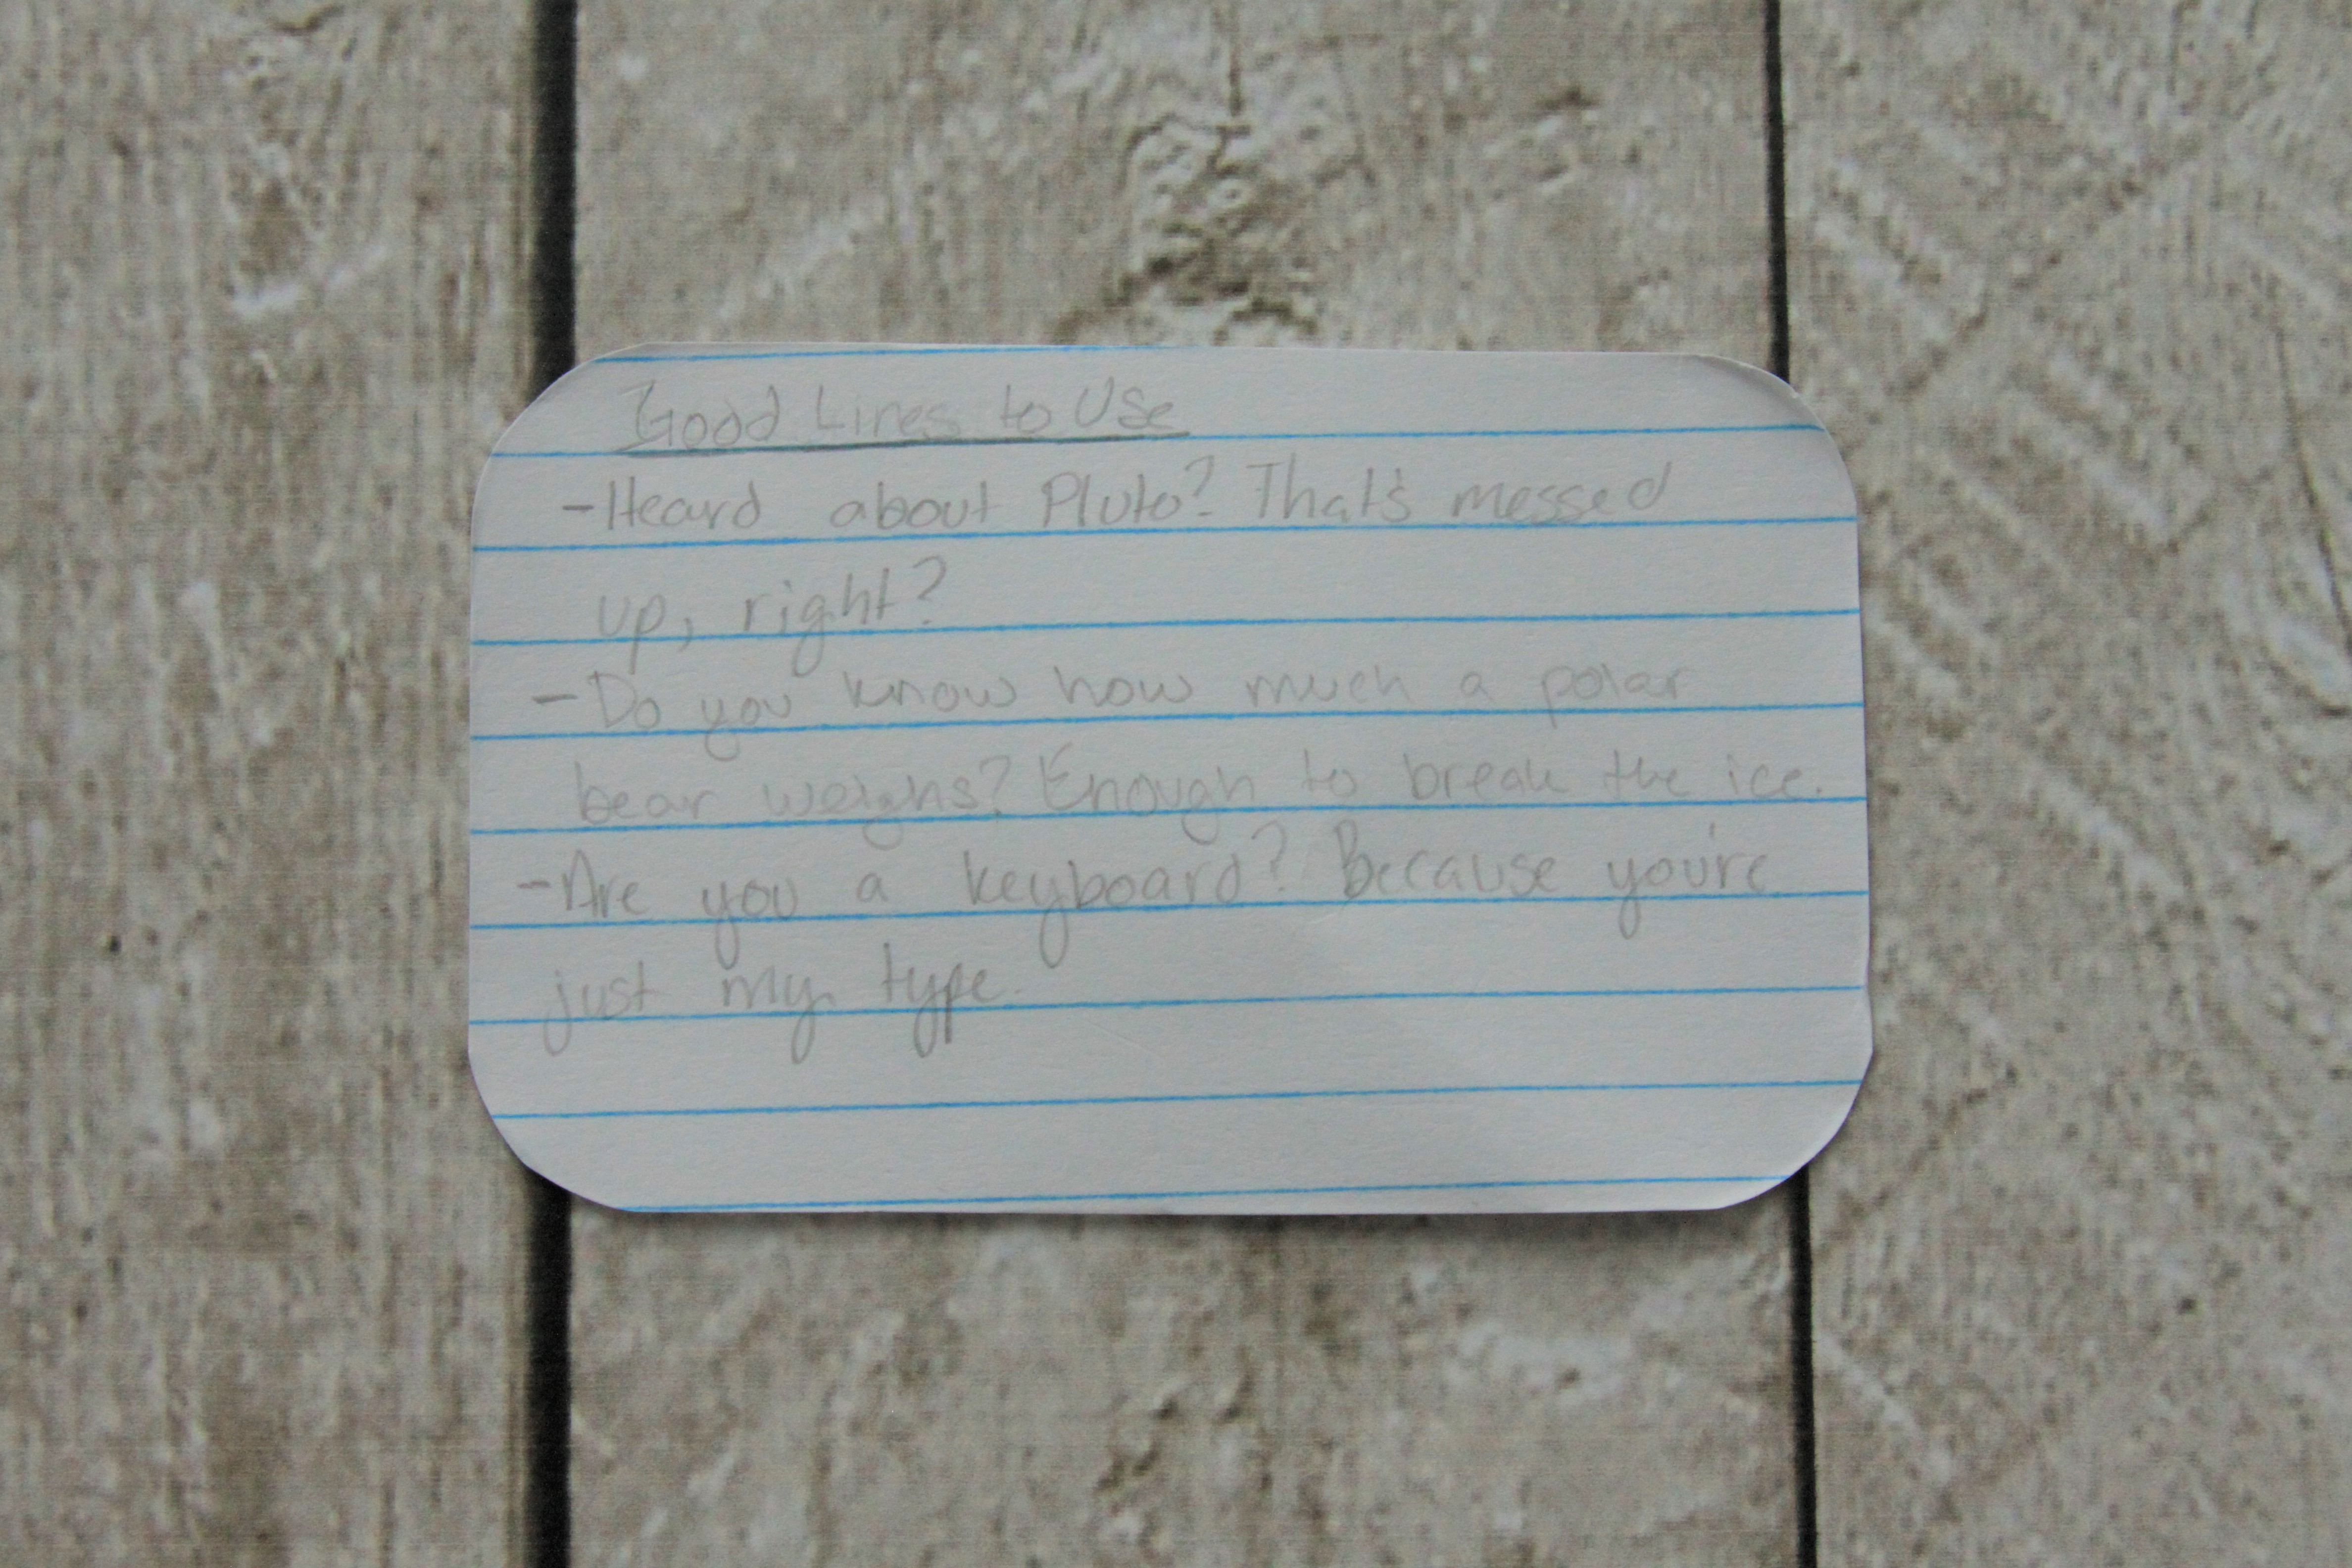 Good Lines to Use
- Heard about Pluto? That's messed
up, right?
- Do you know how much a polar
bear weighs? Enough to break the ice.
- Are you a keyboard? Because you're
just my type.